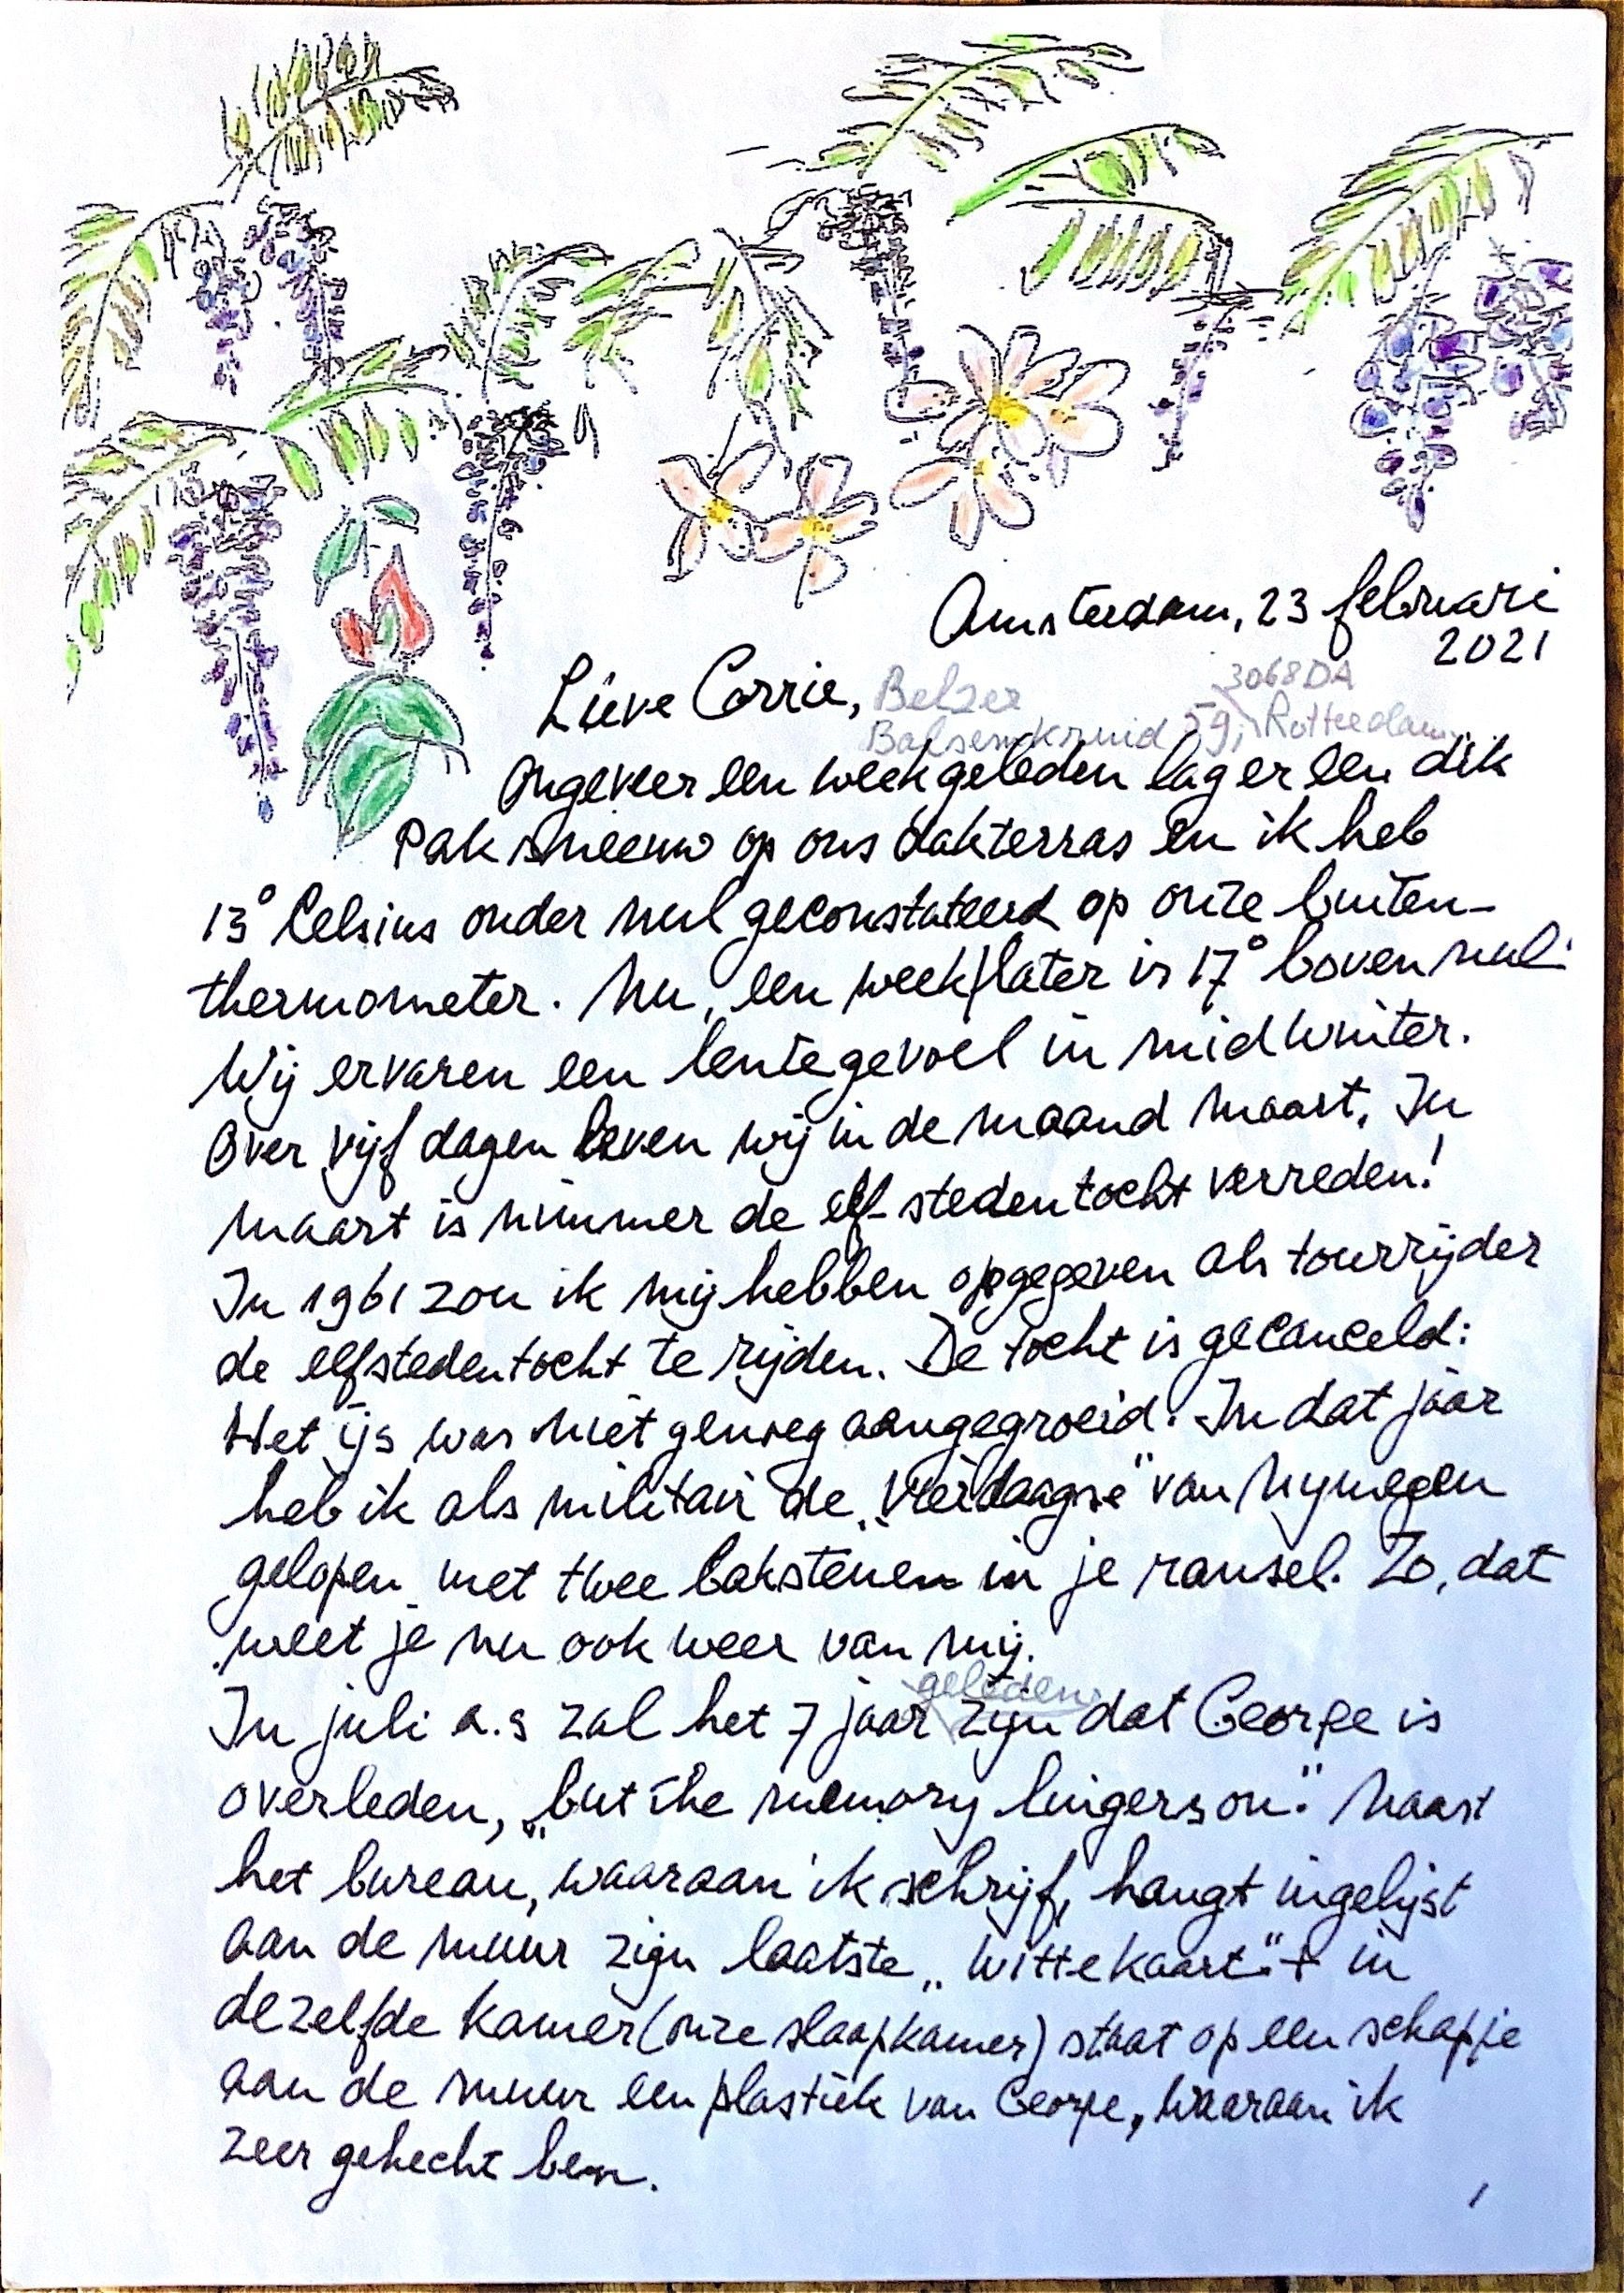 Amsterdam, 23 februari
2021
3068DA
Lieve Corrie, Belzer
Balsemkruid 59, Rotterdam
Ongeveer een week geleden lag er een dik
pak sneeuw op ons dakterras en ik heb
13° Celsius onder nul geconstateerd op onze buiten-
thermometer. Nu, een week later is 17° boven nul.
Wij ervaren een lentegevoel in midwinter.
Over vijf dagen leven wij in de maand maart. In
maart is nimmer de elf-stedentocht verreden!
In 1961 zou ik mij hebben opgegeven als tourrijder
de elfstedentocht te rijden. De tocht is gecanceld:
Het ijs was niet genoeg aangegroeid. In dat jaar
heb ik als militair de „Vierdaagse" van Nymegen
gelopen met twee bakstenen in je ransel. Zo, dat
weet je nu ook weer van mij.
geleden
In juli a.s zal het 7 jaar zijn dat George is
overleden, „but the memory lingers on." Naast
het bureau, waaraan ik schrijf, hangt ingelijst
aan de muur zijn laatste „wittekaart" + in
dezelfde kamer (onze slaapkamer) staat op een schapje
aan de muur een plastiek van George, waaraan ik
zeer gehecht ben.
1